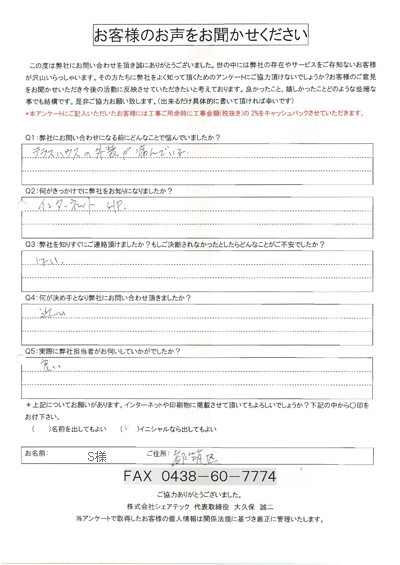 お客様のお声をお聞かせください
この度は弊社にお問い合わせを頂き誠にありがとうございました。世の中には弊社の存在やサービスをご存知ないお客様
が沢山いらっしゃいます。その方たちに弊社をよく知って頂くためのアンケートにご協力頂けないでしょうか？お客様のご意見
をお聞かせいただき今後の活動に反映させていただきたいと考えております。良かったこと、嬉しかったことどのような些細な
事でも結構です。是非ご協力お願い致します。（出来るだけ具体的に書いて頂ければ幸いです）
*本アンケートにご記入いただいたお客様には工事ご用命時に工事金額(税抜き)の 2%をキャッシュバックさせていただきます。
Q1：弊社にお問い合わせになる前にどんなことで悩んでいましたか？
テラスハウスの外装が痛んでいた
Q2：何がきっかけでに弊社をお知りになりましたか？
インターネット HP.
Q3：弊社を知りすぐにご連絡頂けましたか？もしご決断されなかったとしたらどんなことがご不安でしたか？
はい。
Q4：何が決め手となり弊社にお問い合わせ頂きましたか？
近い
Q5：実際に弊社担当者がお伺いしていかがでしたか？
良い
＊上記についてお願いがあります。インターネットや印刷物に掲載させて頂いてもよろしいでしょうか？下記の中から〇印を
お付下さい。
（　）名前を出してもよい　（　）イニシャルなら出してもよい
お名前： S様 ご住所： 都筑区
FAX 0438-60-7774
ご協力ありがとうございました。
株式会社シェアテック 代表取締役 大久保 誠二
当アンケートで取得したお客様の個人情報は関係法規に基づき厳正に管理いたします。